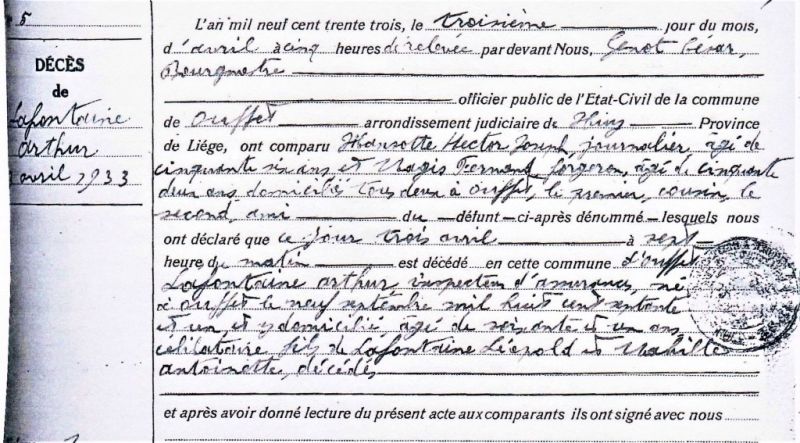 5
DÉCÈS
de
Lafontaine
arthur
avril 1933
L'an mil neuf cent trente trois, le troisième jour du mois,
d'avril à cinq heures de relevée par devant Nous, Genot César,
Bourgmestre
officier public de l'Etat-Civil de la commune
de Ouffet arrondissement judiciaire de Huy Province
de Liége, ont comparu Hansotte Hector Joseph, journalier, âgé de
cinquante six ans et Magis Fernand, forgeron, âgé de cinquante
deux ans domiciliés tous deux à Ouffet, le premier, cousin, le
second, ami du défunt ci-après dénommé lesquels nous
ont déclaré que ce jour trois avril à sept
heure du matin est décédé en cette commune d'Ouffet
Lafontaine arthur, inspecteur d'assurances, né
à Ouffet le neuf septembre mil huit cent septante
et un et y domicilié âgé de soixante et un ans
célibataire, fils de Lafontaine Léopold et
antoinette, décédés
et après avoir donné lecture du présent acte aux comparants ils ont signé avec nous